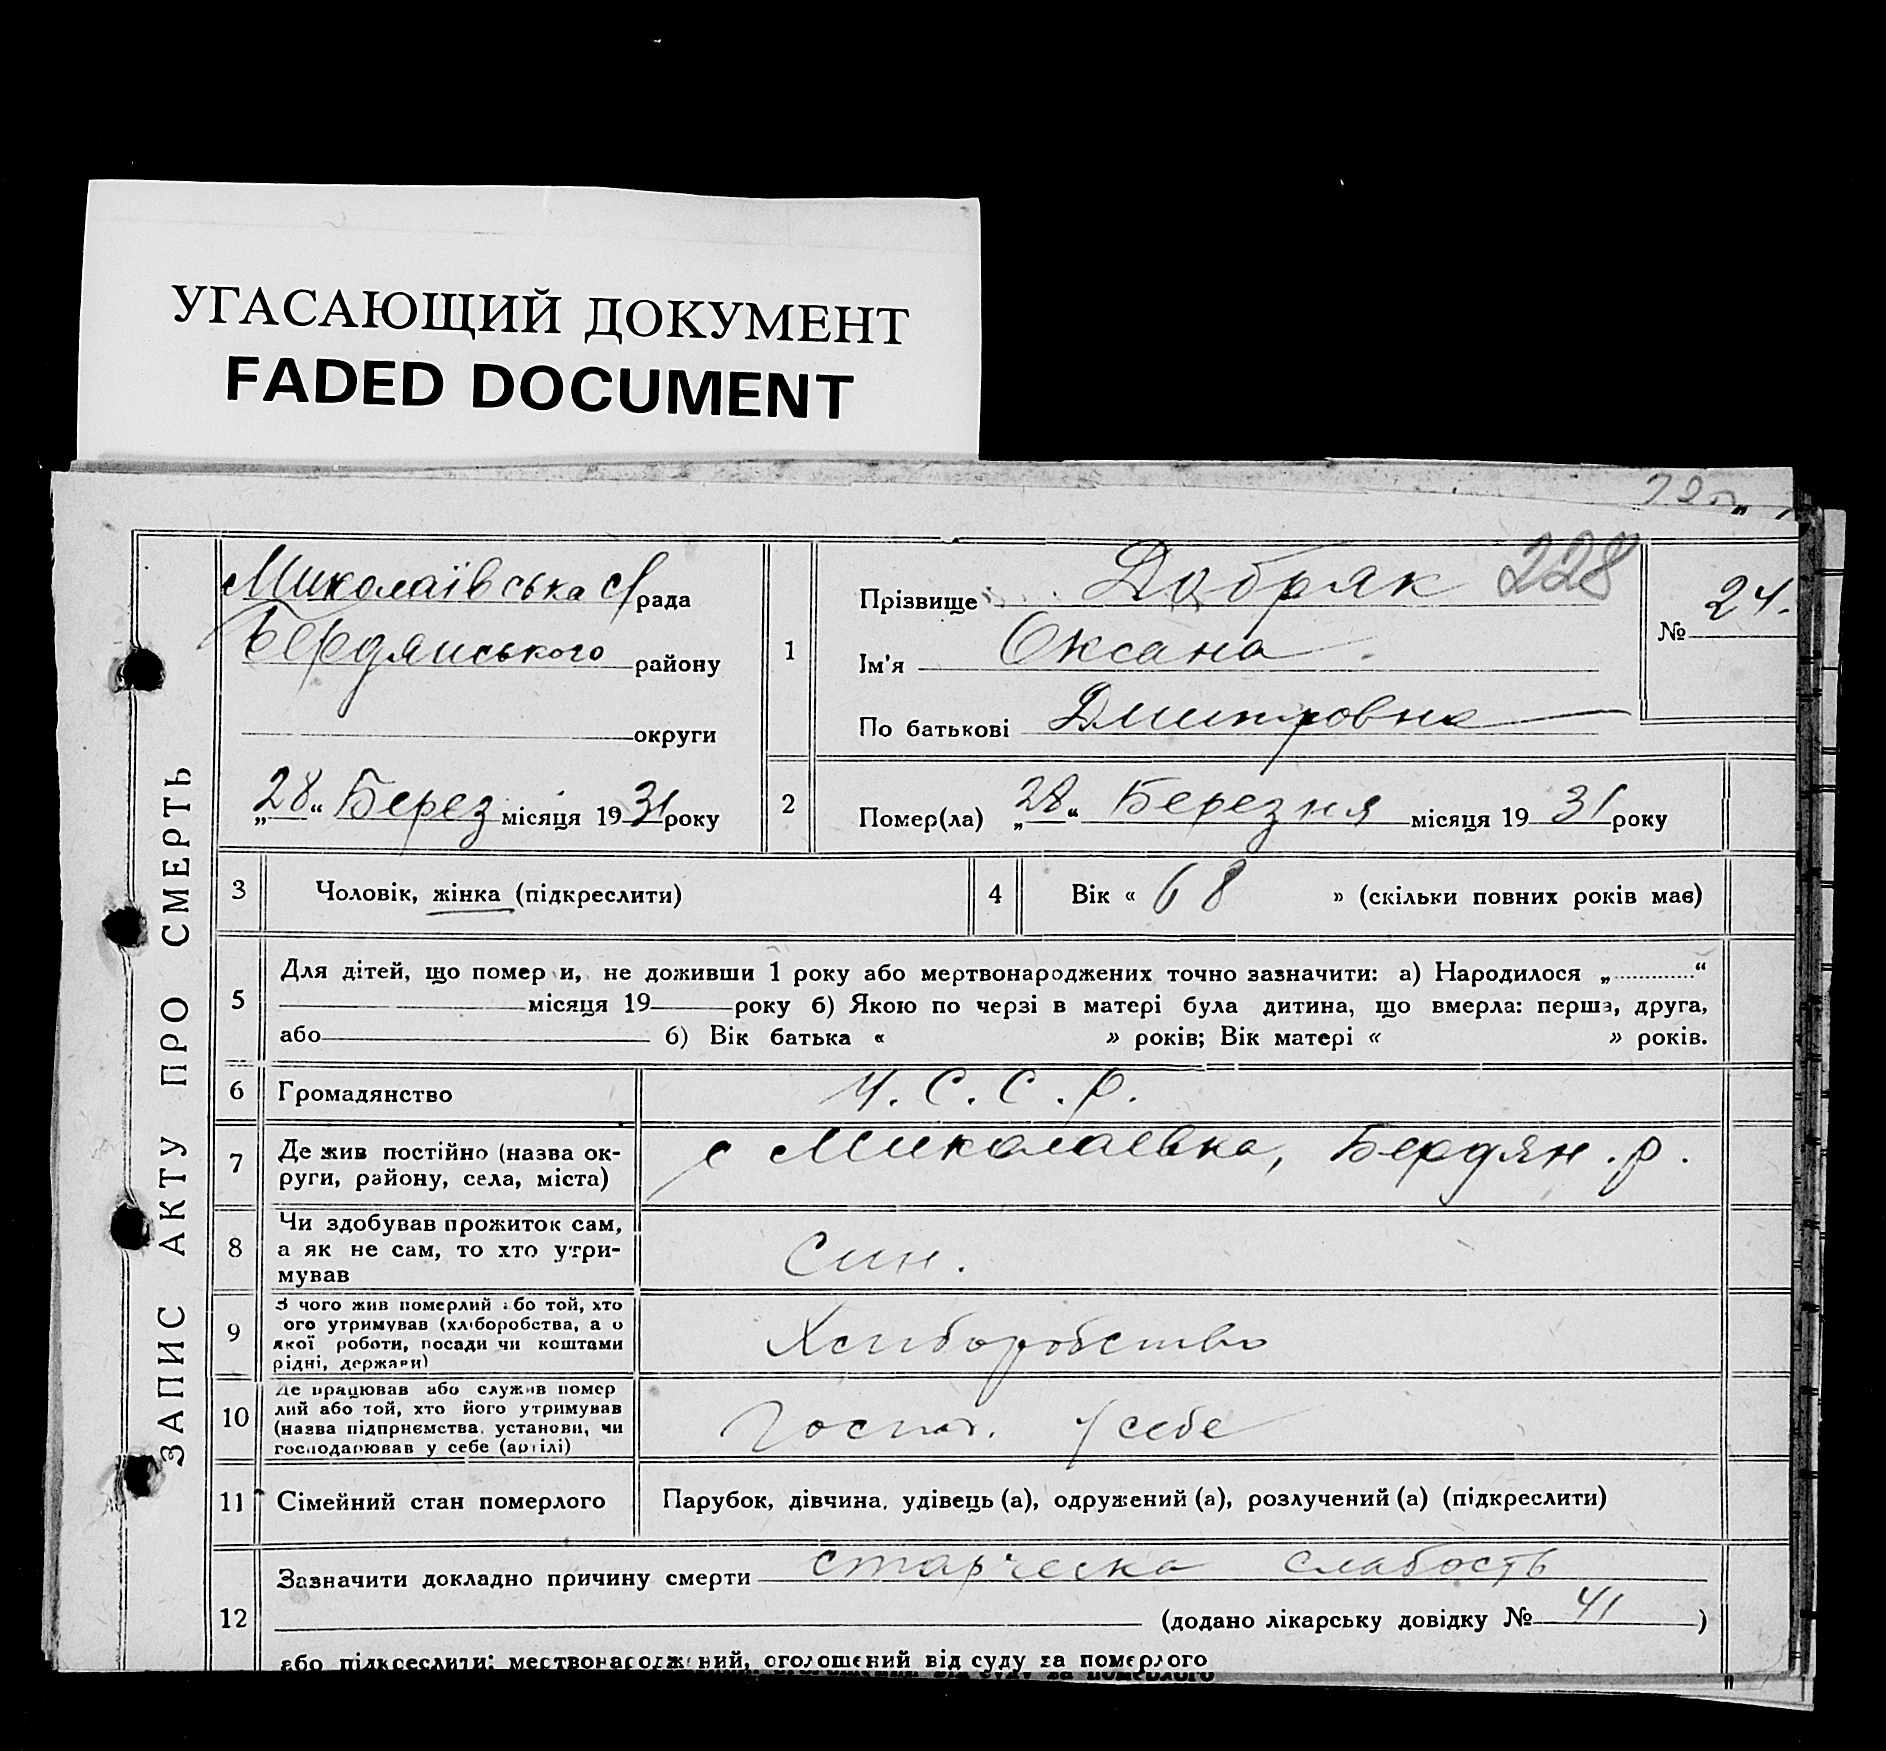 УГАСАЮЩИЙ ДОКУМЕНТ
FADED DOCUMENT
ЗАПИС АКТУ ПРО СМЕРТЬ
Миколаївська с/рада
Бердянського району
округи
„28“ Берез місяця 1931 року
1
Прізвище Добряк 228
Ім'я Оксана
По батькові Дмитровна
№ 24.
2
Помер(ла) „28“ Березня місяця 1931 року
3 Чоловік, жінка (підкреслити)
4 Вік « 68 » (скільки повних років має)
5
Для дітей, що помер и, не доживши 1 року або мертвонароджених точно зазначити: а) Народилося „ “
місяця 19 року б) Якою по черзі в матері була дитина, що вмерла: перша, друга,
або б) Вік батька « » років; Вік матері « » років.
6 Громадянство У.С.С.Р.
7
Де жив постійно (назва ок-
руги, району, села, міста)
с Миколаевка, Бердян.р.
8
Чи здобував прожиток сам,
а як не сам, то хто утри-
мував
Син.
9
З чого жив померлий або той, хто
ого утримував (хліборобства, а о
якої роботи, посади чи коштами
рідні, держави)
Хлиборобство
10
Де працював або служив помер
лий або той, хто його утримував
(назва підприємства, установи, чи
господарював у себе (артілі)
Господ. у себе
11 Сімейний стан померлого Парубок, дівчина, удівець (а), одружений (а), розлучений (а) (підкреслити)
12
Зазначити докладно причину смерти старческа слабость
(додано лікарську довідку № 41 )
або підкреслити: мертвонароджений, оголошений від суду за померлого